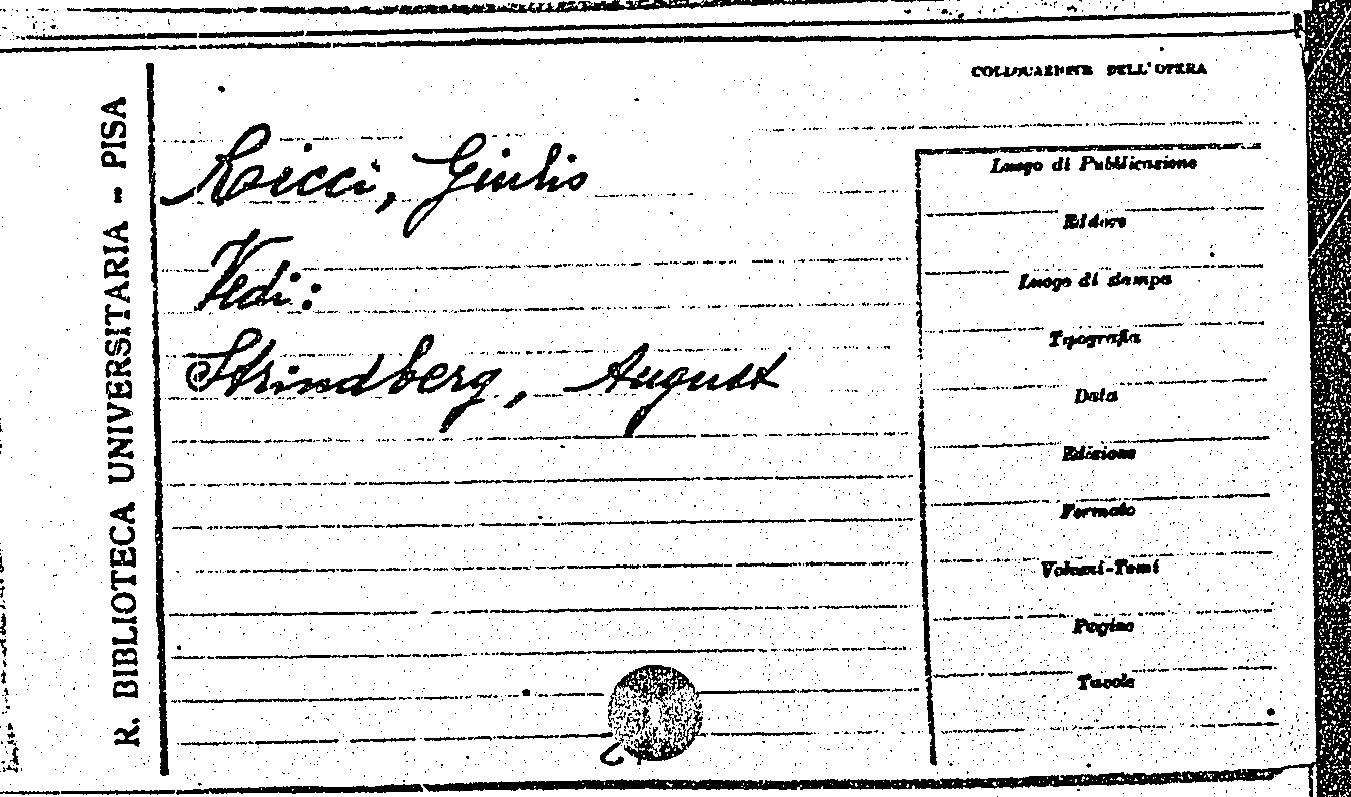 R. BIBLIOTECA UNIVERSITARIA - PISA
COLLOCAZIONE DELL'OPERA
Ricci, Giulio
Vedi:
Strindberg, August
Luogo di Pubblicazione
Editore
Luogo di stampa
Tipografia
Data
Edizione
Formato
Volumi-Tomi
Pagine
Tavole